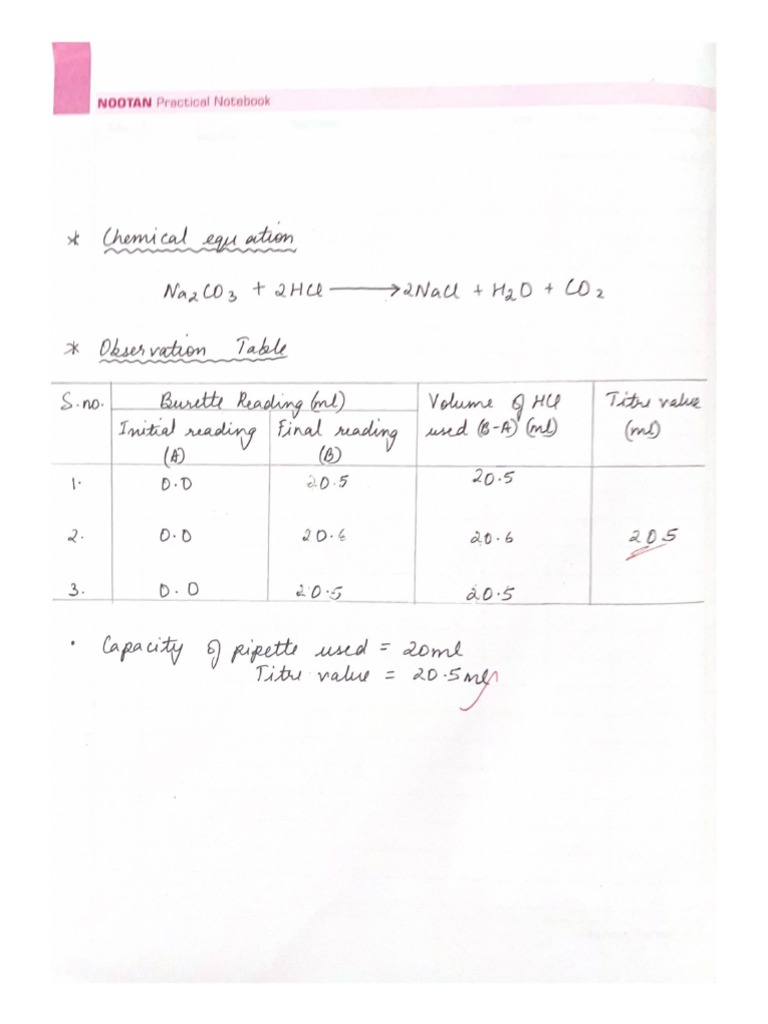 NOOTAN Practical Notebook
* Chemical equation
Na2CO3 + 2HCl ⟶ 2NaCl + H2O + CO2
* Observation Table
S.no. Burette Reading (ml) Volume of HCl Titre value
Initial reading Final reading used (B-A) (ml) (ml)
(A) (B)
1. 0.0 20.5 20.5
2. 0.0 20.6 20.6 20.5
3. 0.0 20.5 20.5
• Capacity of pipette used = 20ml
Titre value = 20.5ml